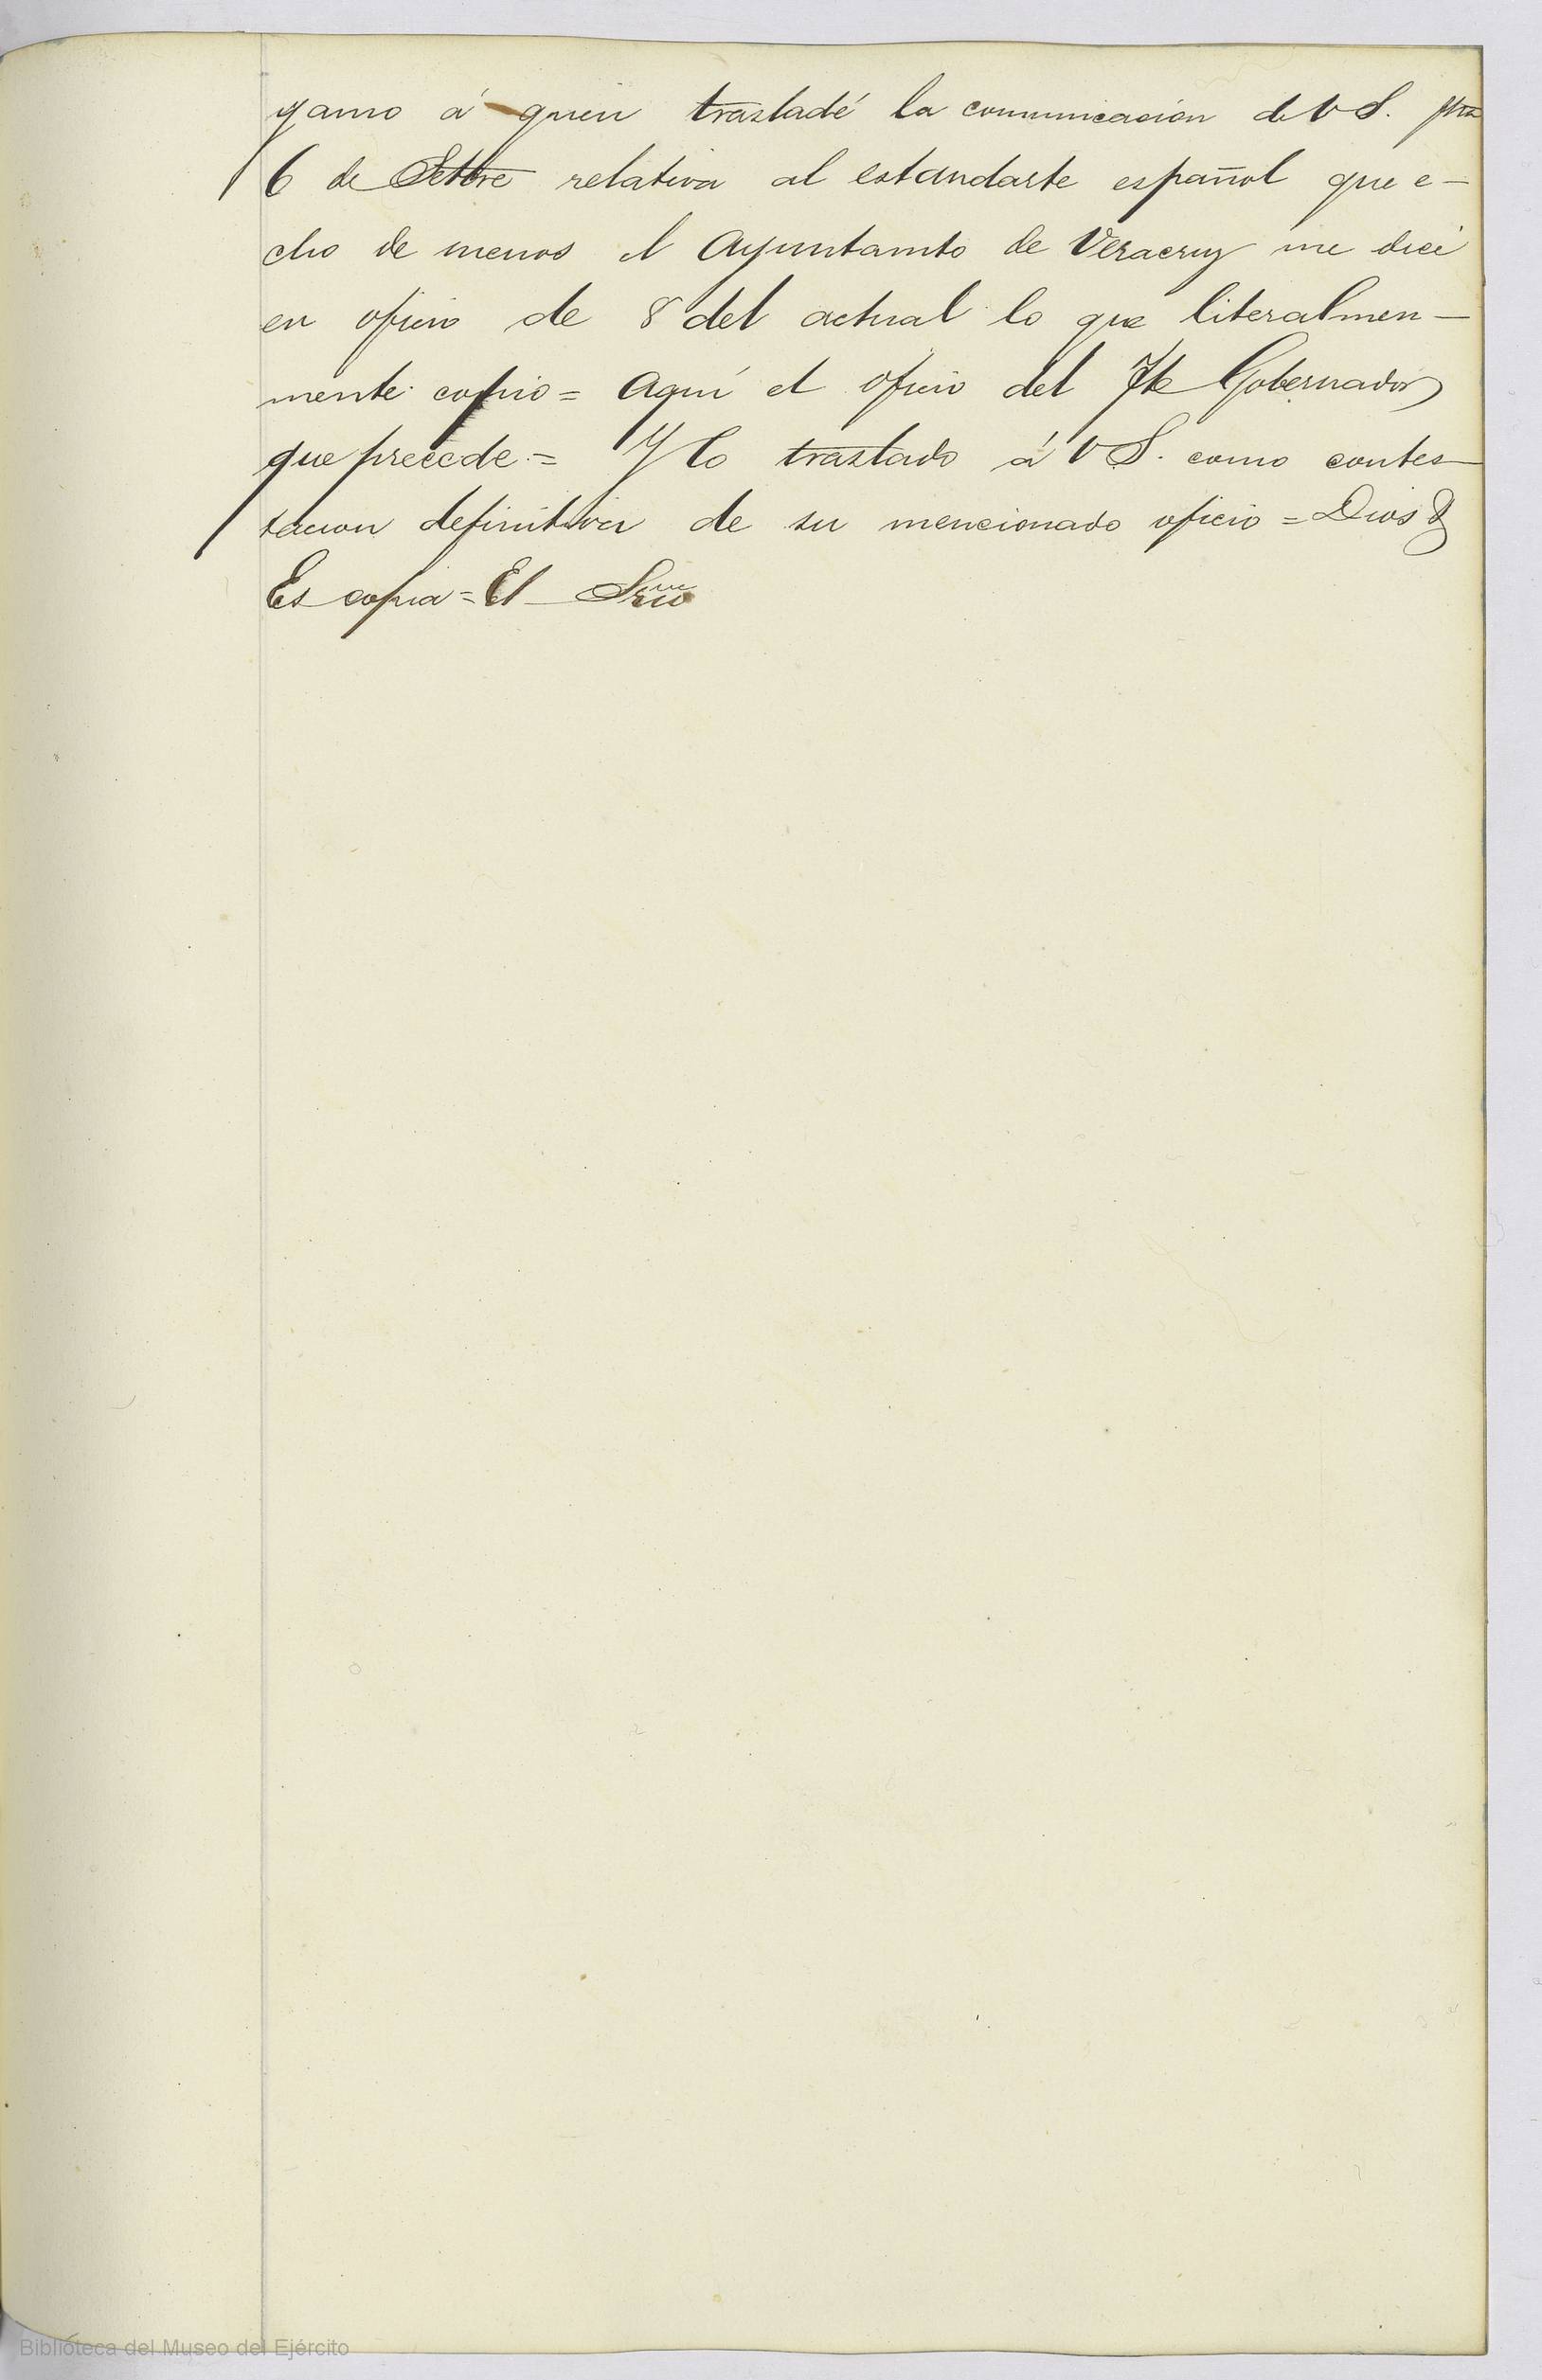 gamo á quien trasladé la comunicación de V S. fha
6 de Setbre relativa al estandarte español que e-
cho de menos el Ayuntamto de Veracruz me dice
en oficio de 8 del actual lo que literalmen-
mente copio = Aquí el oficio del Tte Gobernador
que precede = Y lo traslado á V S. como contes-
tacion definitiva de su mencionado oficio = Dios &
Es copia = El Srio
Biblioteca del Museo del Ejército